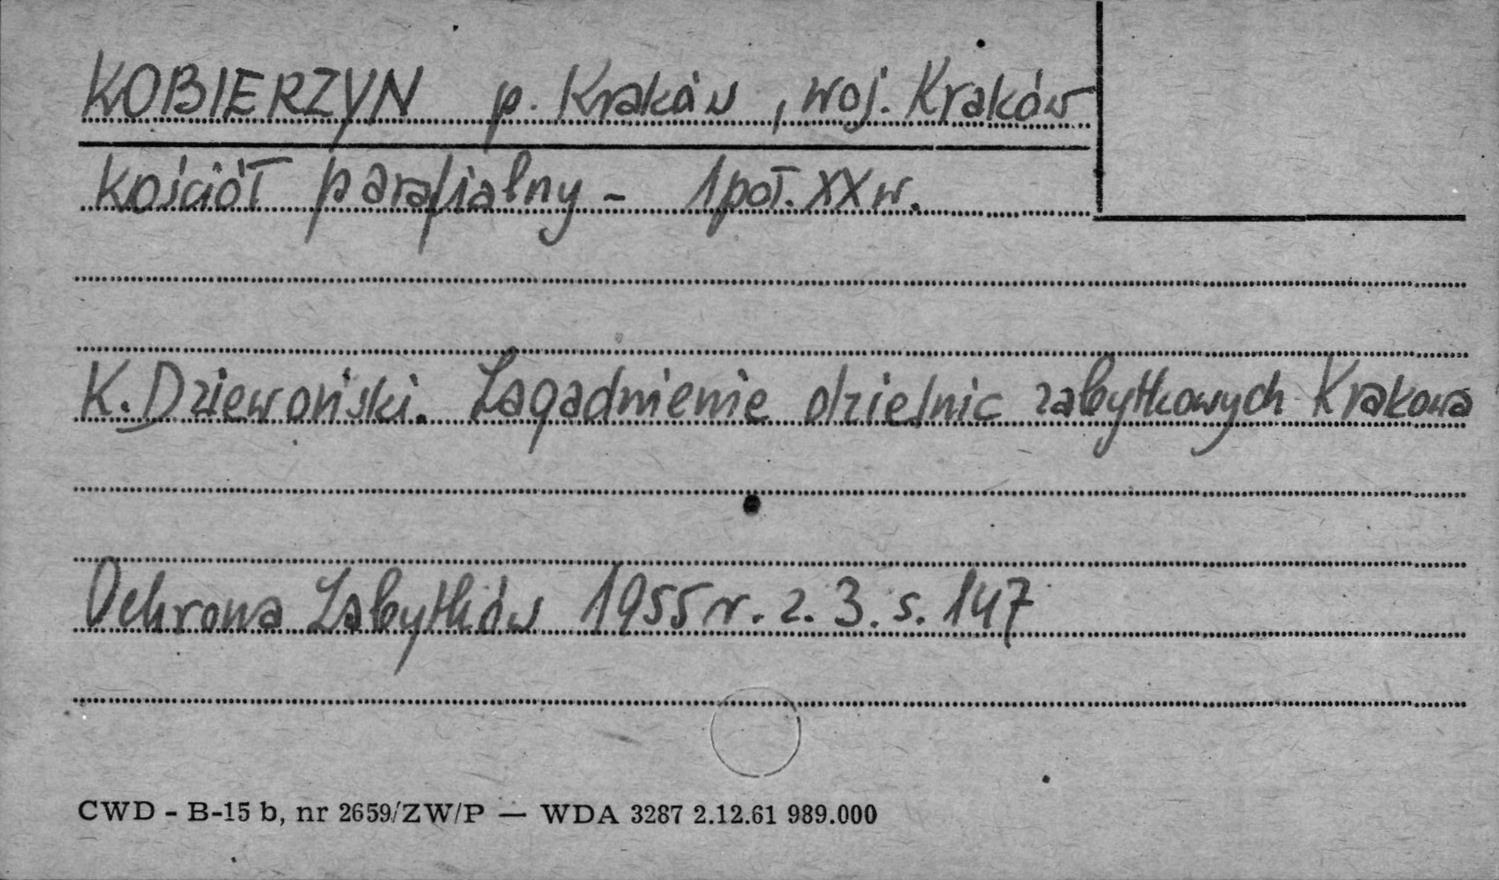 KOBIERZYN p. Kraków, woj. Kraków
Kościół parafialny - 1 poł. XX w.
K. Dziewoński. Zagadnienie dzielnic zabytkowych Krakowa
Ochrona Zabytków 1955 r. z. 3. s. 147
CWD - B-15 b, nr 2659/ZW/P — WDA 3287 2.12.61 989.000